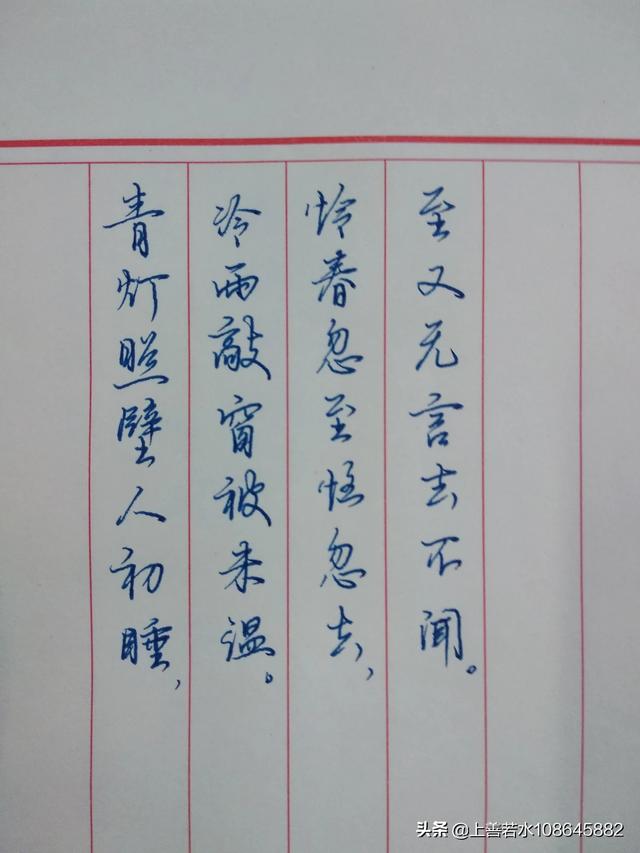 青灯照壁人初睡,
冷雨敲窗被未温。
怜春忽至恼忽去,
至又无言去不闻。
头条 @上善若水108645882